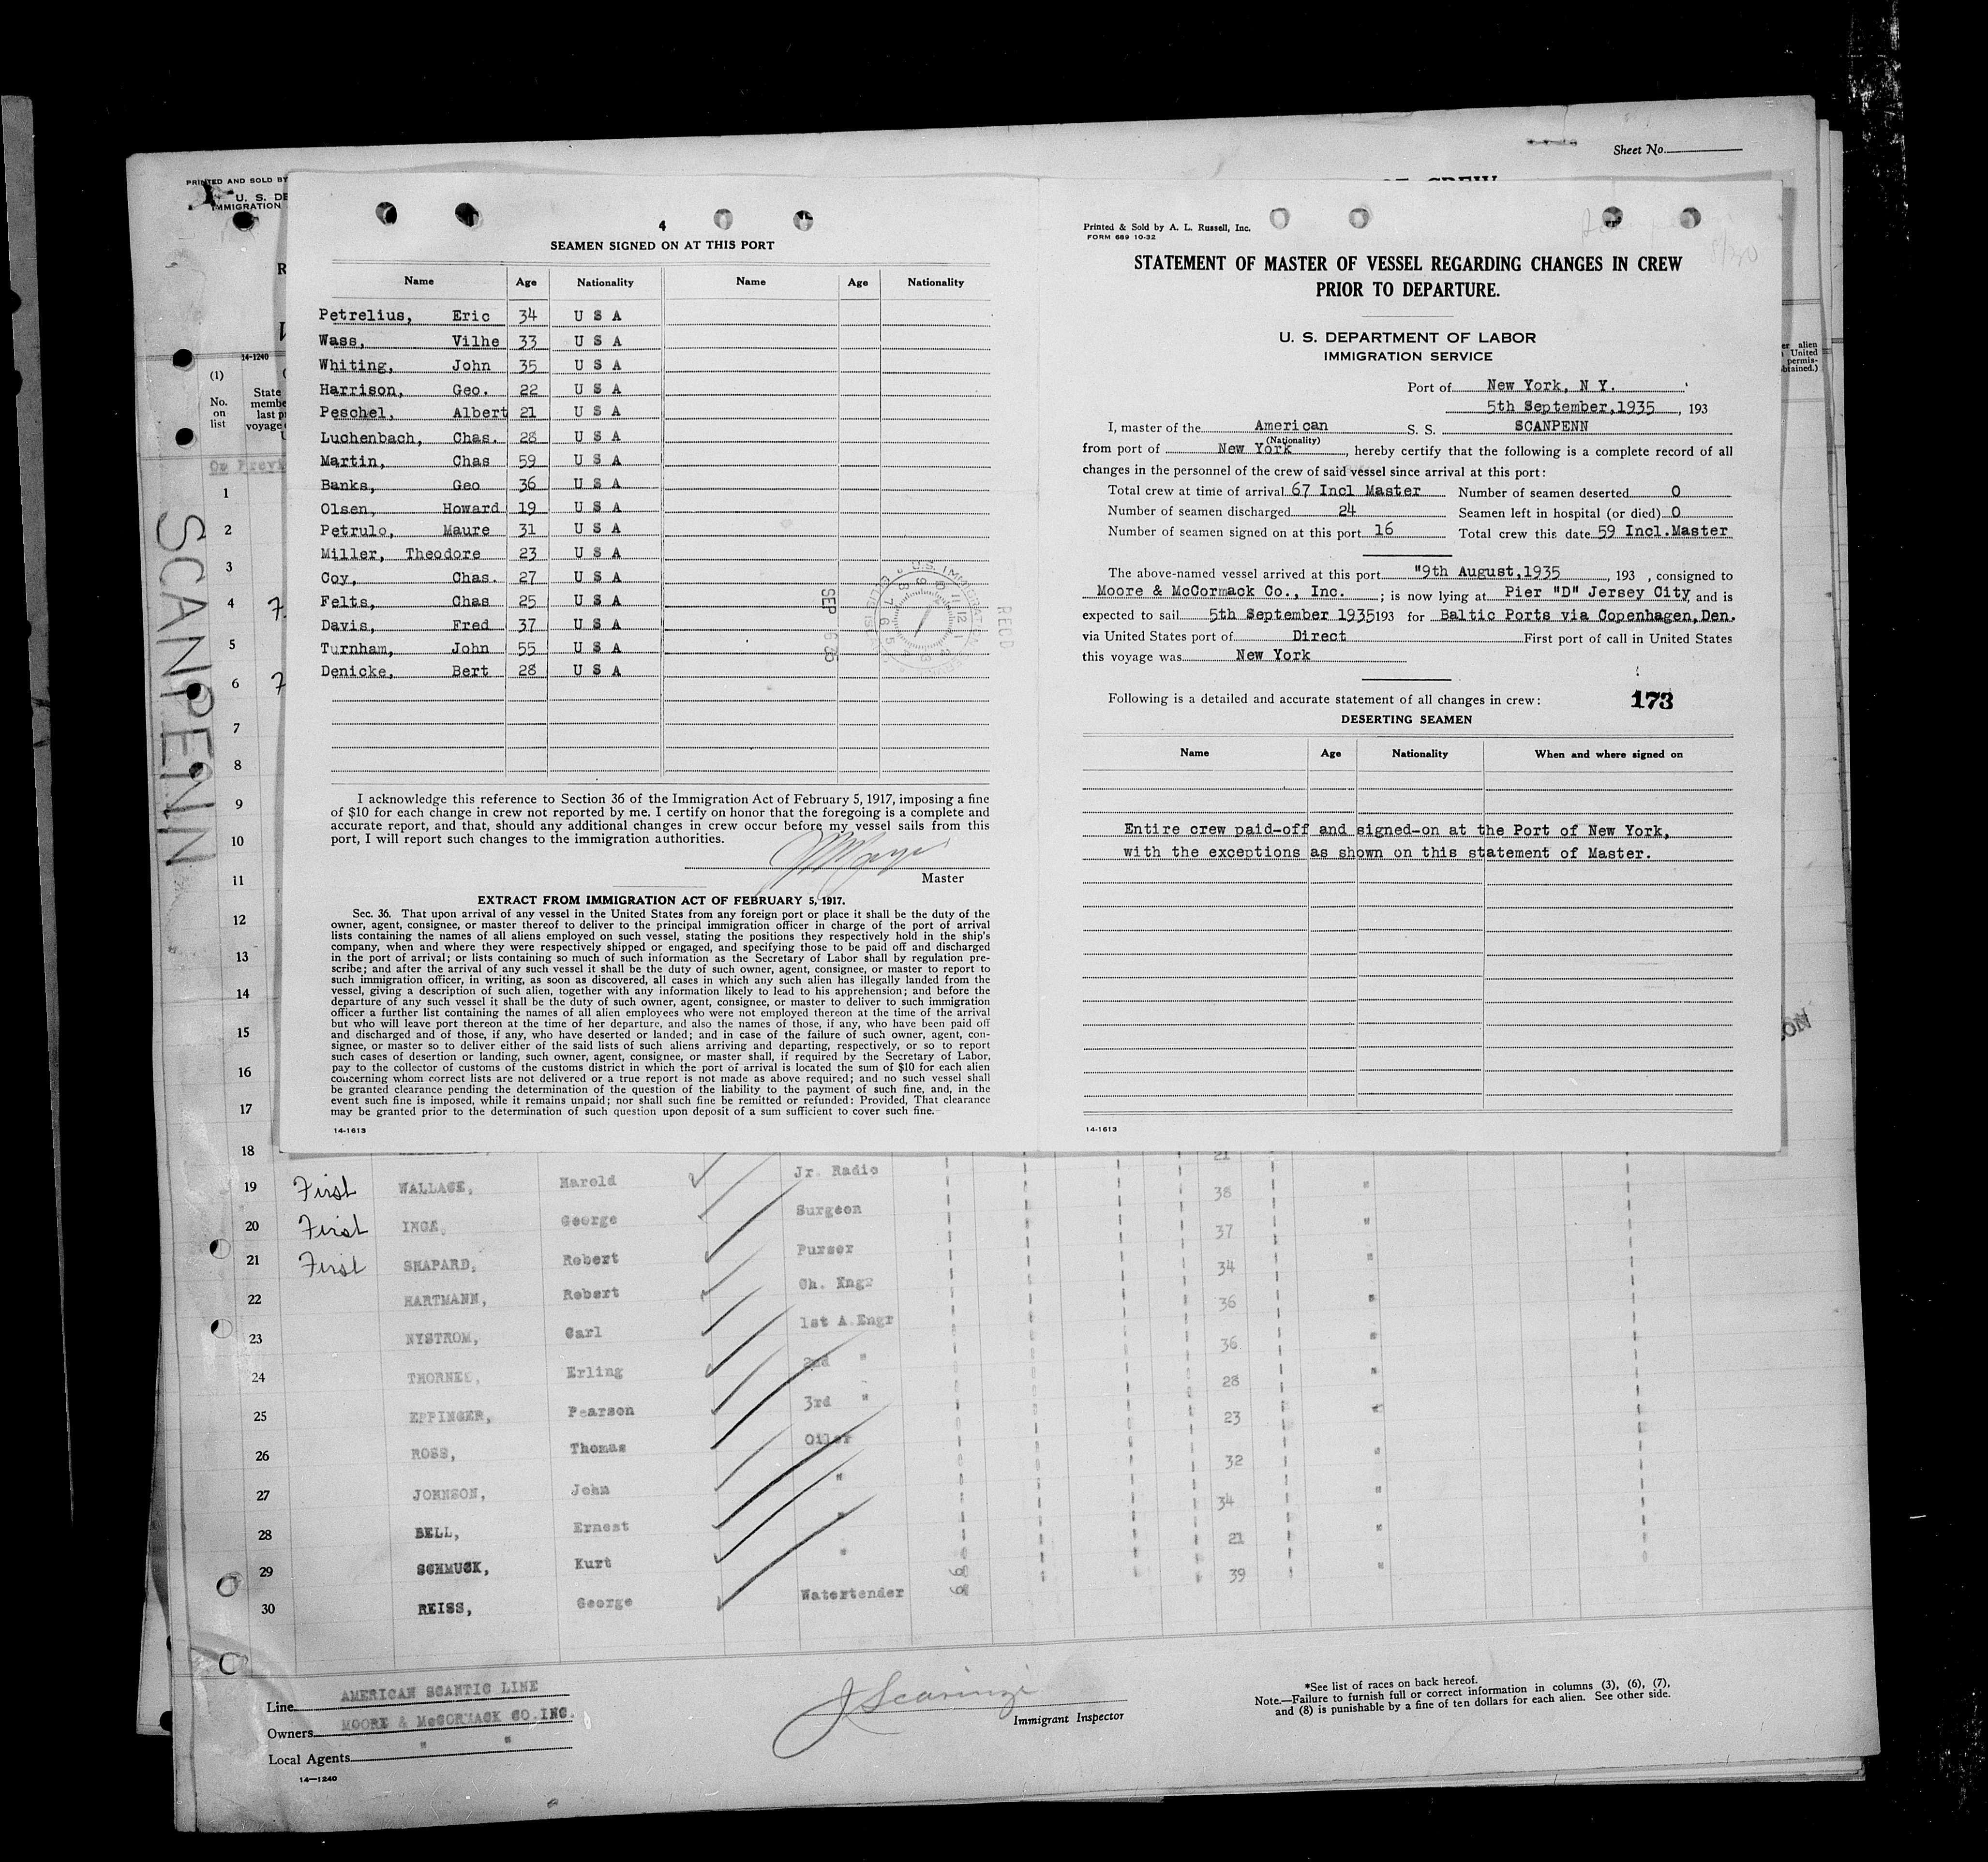 Sheet No.
PRINTED AND SOLD BY
U. S. DE
IMMIGRATION
4
SEAMEN SIGNED ON AT THIS PORT
Name Age Nationality Name Age Nationality
Petrelius, Eric 34 U S A
Wass, Vilhe 33 U S A
Whiting, John 35 U S A
Harrison, Geo. 22 U S A
Peschel, Albert 21 U S A
Luchenbach, Chas. 28 U S A
Martin, Chas 59 U S A
Banks, Geo 36 U S A
Olsen, Howard 19 U S A
Petrulo, Maure 31 U S A
Miller, Theodore 23 U S A
Coy, Chas. 27 U S A
Felts, Chas 25 U S A
Davis, Fred 37 U S A
Turnham, John 55 U S A
Denicke, Bert 28 U S A
SEP 6 35
REC'D
I acknowledge this reference to Section 36 of the Immigration Act of February 5, 1917, imposing a fine
of $10 for each change in crew not reported by me. I certify on honor that the foregoing is a complete and
accurate report, and that, should any additional changes in crew occur before my vessel sails from this
port, I will report such changes to the immigration authorities.
Master
EXTRACT FROM IMMIGRATION ACT OF FEBRUARY 5, 1917.
Sec. 36. That upon arrival of any vessel in the United States from any foreign port or place it shall be the duty of the
owner, agent, consignee, or master thereof to deliver to the principal immigration officer in charge of the port of arrival
lists containing the names of all aliens employed on such vessel, stating the positions they respectively hold in the ship's
company, when and where they were respectively shipped or engaged, and specifying those to be paid off and discharged
in the port of arrival; or lists containing so much of such information as the Secretary of Labor shall by regulation pre-
scribe; and after the arrival of any such vessel it shall be the duty of such owner, agent, consignee, or master to report to
such immigration officer, in writing, as soon as discovered, all cases in which any such alien has illegally landed from the
vessel, giving a description of such alien, together with any information likely to lead to his apprehension; and before the
departure of any such vessel it shall be the duty of such owner, agent, consignee, or master to deliver to such immigration
officer a further list containing the names of all alien employees who were not employed thereon at the time of the arrival
but who will leave port thereon at the time of her departure, and also the names of those, if any, who have been paid off
and discharged and of those, if any, who have deserted or landed; and in case of the failure of such owner, agent, con-
signee, or master so to deliver either of the said lists of such aliens arriving and departing, respectively, or so to report
such cases of desertion or landing, such owner, agent, consignee, or master shall, if required by the Secretary of Labor,
pay to the collector of customs of the customs district in which the port of arrival is located the sum of $10 for each alien
concerning whom correct lists are not delivered or a true report is not made as above required; and no such vessel shall
be granted clearance pending the determination of the question of the liability to the payment of such fine, and, in the
event such fine is imposed, while it remains unpaid; nor shall such fine be remitted or refunded: Provided, That clearance
may be granted prior to the determination of such question upon deposit of a sum sufficient to cover such fine.
14-1613
Printed & Sold by A. L. Russell, Inc.
FORM 689 10-32
STATEMENT OF MASTER OF VESSEL REGARDING CHANGES IN CREW
PRIOR TO DEPARTURE.
U. S. DEPARTMENT OF LABOR
IMMIGRATION SERVICE
Port of New York, N Y.
5th September, 1935, 193
I, master of the American S. S. SCANPENN
(Nationality)
from port of New York, hereby certify that the following is a complete record of all
changes in the personnel of the crew of said vessel since arrival at this port:
Total crew at time of arrival 67 Incl Master Number of seamen deserted 0
Number of seamen discharged 24 Seamen left in hospital (or died) 0
Number of seamen signed on at this port 16 Total crew this date 59 Incl.Master
The above-named vessel arrived at this port "9th August, 1935, 193 , consigned to
Moore & McCormack Co., Inc. ; is now lying at Pier "D" Jersey City, and is
expected to sail 5th September 1935 193 for Baltic Ports via Copenhagen, Den.
via United States port of Direct First port of call in United States
this voyage was New York
Following is a detailed and accurate statement of all changes in crew: 173
DESERTING SEAMEN
Name Age Nationality When and where signed on
Entire crew paid-off and signed-on at the Port of New York,
with the exceptions as shown on this statement of Master.
14-1613
er alien
United
permis-
obtained.)
14-1240
(1)
No.
on
list
State
membe
last p
voyage
On Previ
SCANPENN
1
2
3
4 7
5
6 7
7
8
9
10
11
12
13
14
15
16
17
18 21
19 First WALLACE, Harold Jr. Radio 38 "
20 First INCA, George Surgeon 37 "
21 First SHAPARD, Robert Purser 34 "
22 HARTMANN, Robert Ch. Engr 36 "
23 NYSTROM, Carl 1st A.Engr 36 "
24 THORNES, Erling 2nd " 28 "
25 EPPINGER, Pearson 3rd " 23 "
26 ROSS, Thomas Oiler 32 "
27 JOHNSON, John " 34 "
28 BELL, Ernest " 21 "
29 SCHMUCK, Kurt " 39 "
30 REISS, George Watertender
Line AMERICAN SCANTIC LINE
Owners MOORE & McCORMACK CO.INC.
Local Agents " "
14—1240
J Scarinzi
Immigrant Inspector
*See list of races on back hereof.
Note.—Failure to furnish full or correct information in columns (3), (6), (7),
and (8) is punishable by a fine of ten dollars for each alien. See other side.